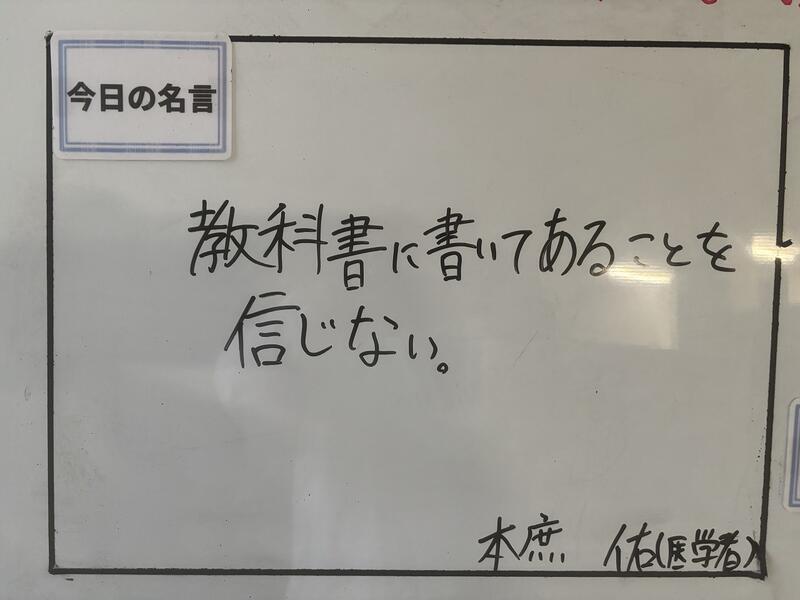 今日の名言
教科書に書いてあることを
信じない。
本庶 佑(医学者)